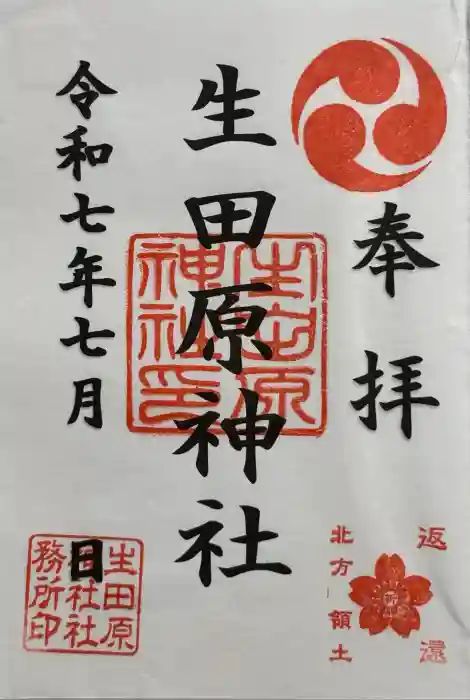 奉拝
返還
北方領土
祈
生田原神社
生田原
神社印
令和七年七月 日
生田原
神社社
務所印